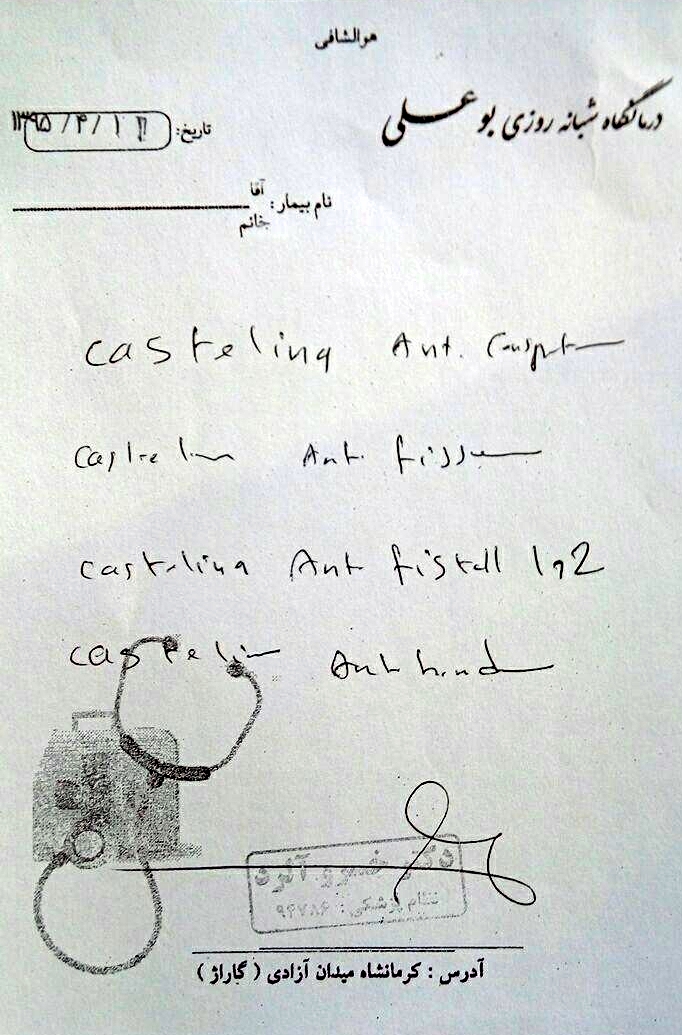 هوالشافی
درمانگاه شبانه روزی بوعلی
تاریخ: ۱۳۹۵/۴/۱۲
نام بیمار: آقا
خانم
Castelina Ant.
Castelin Ant. fissu
Castelina Ant fistell 1,2
Castelin Ant
دکتر خسرو
نظام پزشکی: ۹۴۷۸۶
آدرس : کرمانشاه میدان آزادی ( گاراژ )